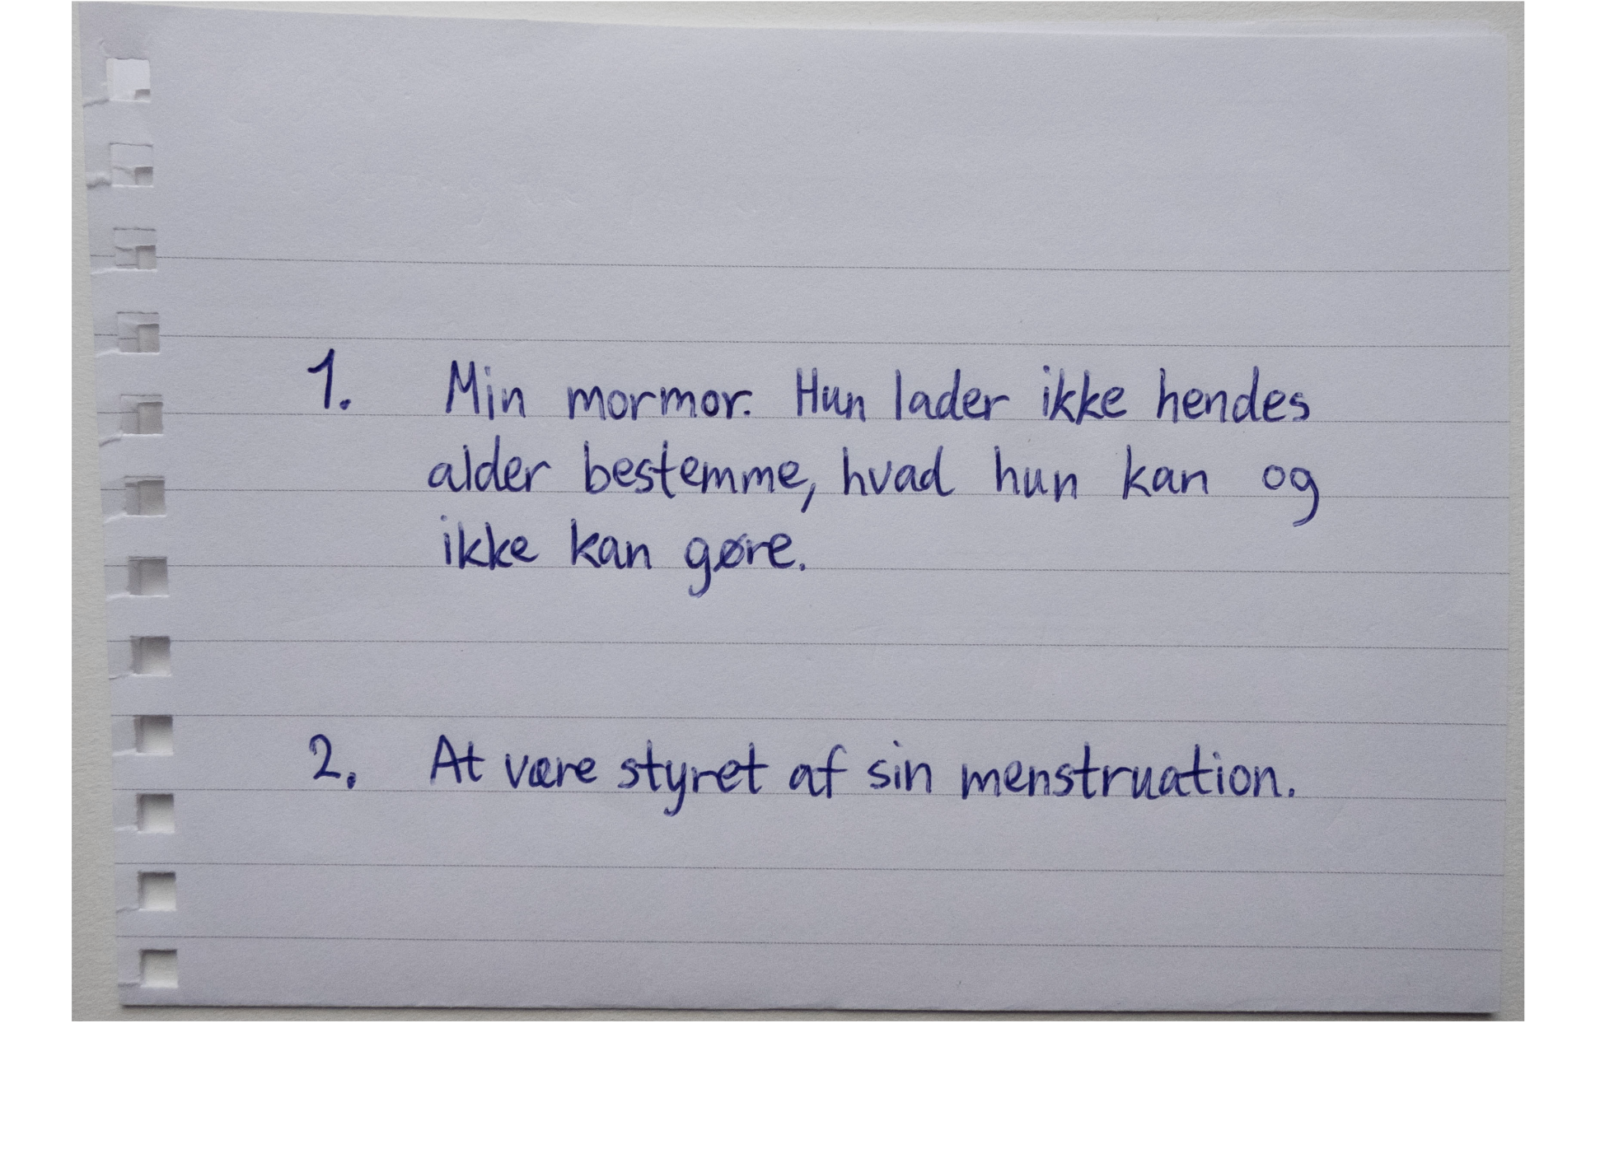 1. Min mormor. Hun lader ikke hendes
alder bestemme, hvad hun kan og
ikke kan gøre.
2. At være styret af sin menstruation.